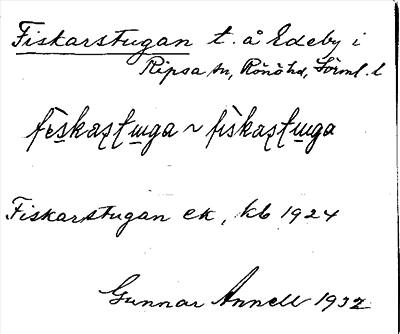 Fiskarstugan t. å Edeby i
Ripsa sn, Rönö hd, Sörml. l
fèskaʂʈɯga ~ fìskaʂʈɯga
Fiskarstugan ek, kb 1924
Gunnar Annell 1932